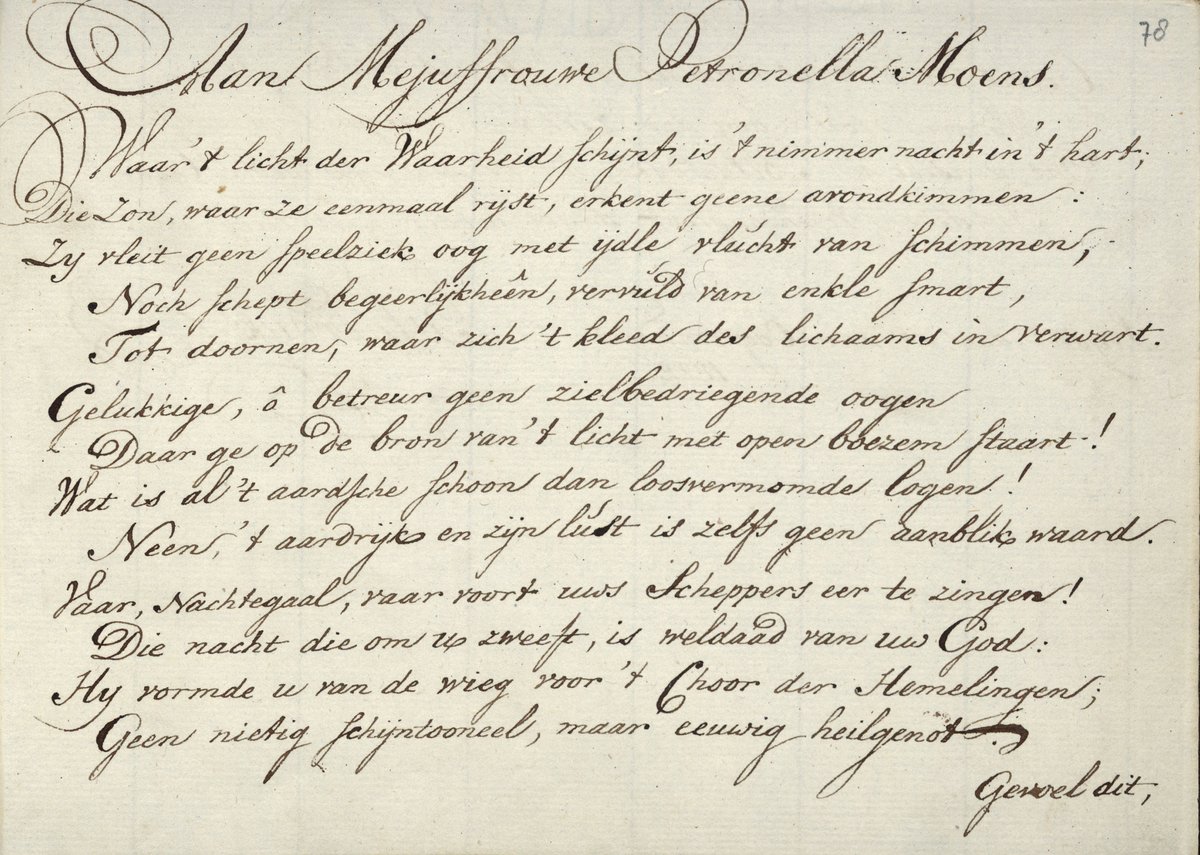 78
Aan Mejuffrouwe Petronella Moens.
Waar 't licht der Waarheid schijnt, is 't nimmer nacht in 't hart;
Die Zon, waar ze eenmaal rijst, erkent geene avondkimmen:
Zy vleit geen speelziek oog met ijdle vlúcht van schimmen,
Noch schept begeerlijkheên, vervúld van enkle smart,
Tot doornen, waar zich 't kleed des lichaams in verwart.
Gelukkige, ô betreur geen zielbedriegende oogen
Daar ge op de bron van 't licht met open boezem staart!
Wat is al 't aardsche schoon dan loosvermomde logen!
Neen, 't aardrijk en zijn lúst is zelfs geen aanblik waard.
Vaar, Nachtegaal, vaar voort uws Scheppers eer te zingen!
Die nacht die om u zweeft, is weldaad van uw God:
Hy vormde u van de wieg voor 't Choor der Hemelingen;
Geen nietig schijntooneel, maar eeuwig heilgenot.
Gevoel dit,